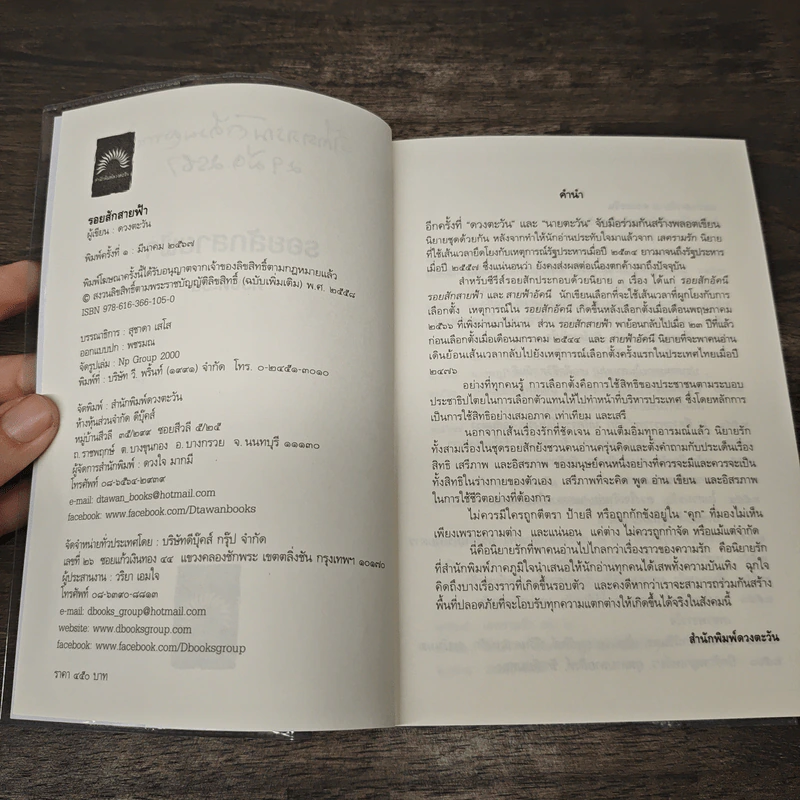 สำนักพิมพ์ดวงตะวัน
รอยสักสายฟ้า
ผู้เขียน : ดวงตะวัน
พิมพ์ครั้งที่ ๑ : มีนาคม ๒๕๖๗
พิมพ์โฆษณาครั้งนี้ได้รับอนุญาตจากเจ้าของลิขสิทธิ์ตามกฎหมายแล้ว
© สงวนลิขสิทธิ์ตามพระราชบัญญัติลิขสิทธิ์ (ฉบับเพิ่มเติม) พ.ศ. ๒๕๕๘
ISBN 978-616-366-105-0
บรรณาธิการ : สุชาดา เสโส
ออกแบบปก : พชรมณ
จัดรูปเล่ม : Np Group 2000
พิมพ์ที่ : บริษัท วี. พริ้นท์ (๑๙๙๑) จำกัด โทร. ๐-๒๔๕๑-๓๐๑๐
จัดพิมพ์ : สำนักพิมพ์ดวงตะวัน
ห้างหุ้นส่วนจำกัด ดีบุ๊คส์
หมู่บ้านสีวลี ๓๕/๒๙๙ ซอยสีวลี ๕/๒๕
ถ.ราชพฤกษ์ ต.บางขุนกอง อ.บางกรวย จ.นนทบุรี ๑๑๑๓๐
ผู้จัดการสำนักพิมพ์ : ดวงใจ มากมี
โทรศัพท์ ๐๘-๖๕๐๔-๒๙๓๙
e-mail: dtawan_books@hotmail.com
facebook: www.facebook.com/Dtawanbooks
จัดจำหน่ายทั่วประเทศโดย : บริษัทดีบุ๊คส์ กรุ๊ป จำกัด
เลขที่ ๒๖ ซอยแก้วเงินทอง ๔๔ แขวงคลองชักพระ เขตตลิ่งชัน กรุงเทพฯ ๑๐๑๗๐
ผู้ประสานงาน : วริยา เอมใจ
โทรศัพท์ ๐๘-๖๓๙๐-๘๘๑๓
e-mail: dbooks_group@hotmail.com
website: www.dbooksgroup.com
facebook: www.facebook.com/Dbooksgroup
ราคา ๔๕๐ บาท
คำนำ
อีกครั้งที่ “ดวงตะวัน” และ “นายตะวัน” จับมือร่วมกันสร้างพลอตเขียน
นิยายชุดด้วยกัน หลังจากทำให้นักอ่านประทับใจมาแล้วจาก เลศรามรัก นิยาย
ที่ใช้เส้นเวลายึดโยงกับเหตุการณ์รัฐประหารเมื่อปี ๒๕๓๔ ยาวมาจนถึงรัฐประหาร
เมื่อปี ๒๕๕๗ ซึ่งแน่นอนว่า ยังคงส่งผลต่อเนื่องตกค้างมาถึงปัจจุบัน
สำหรับซีรีส์รอยสักประกอบด้วยนิยาย ๓ เรื่อง ได้แก่ รอยสักอัคนี
รอยสักสายฟ้า และ สายฟ้าอัคนี นักเขียนเลือกที่จะใช้เส้นเวลาที่ผูกโยงกับการ
เลือกตั้ง เหตุการณ์ใน รอยสักอัคนี เกิดขึ้นหลังเลือกตั้งเมื่อเดือนพฤษภาคม
๒๕๖๖ ที่เพิ่งผ่านมาไม่นาน ส่วน รอยสักสายฟ้า พาย้อนกลับไปเมื่อ ๒๓ ปีที่แล้ว
ก่อนเลือกตั้งเมื่อเดือนมกราคม ๒๕๔๔ และ สายฟ้าอัคนี นิยายที่จะพาคนอ่าน
เดินย้อนเส้นเวลากลับไปยังเหตุการณ์เลือกตั้งครั้งแรกในประเทศไทยเมื่อปี
๒๔๗๖
อย่างที่ทุกคนรู้ การเลือกตั้งคือการใช้สิทธิของประชาชนตามระบอบ
ประชาธิปไตยในการเลือกตัวแทนให้ไปทำหน้าที่บริหารประเทศ ซึ่งโดยหลักการ
เป็นการใช้สิทธิอย่างเสมอภาค เท่าเทียม และเสรี
นอกจากเส้นเรื่องรักที่ชัดเจน อ่านเต็มอิ่มทุกอารมณ์แล้ว นิยายรัก
ทั้งสามเรื่องในชุดรอยสักยังชวนคนอ่านครุ่นคิดและตั้งคำถามกับประเด็นเรื่อง
สิทธิ เสรีภาพ และอิสรภาพ ของมนุษย์คนหนึ่งอย่างที่ควรจะมีและควรจะเป็น
ทั้งสิทธิในร่างกายของตัวเอง เสรีภาพที่จะคิด พูด อ่าน เขียน และอิสรภาพ
ในการใช้ชีวิตอย่างที่ต้องการ
ไม่ควรมีใครถูกตีตรา ป้ายสี หรือถูกกักขังอยู่ใน “คุก” ที่มองไม่เห็น
เพียงเพราะความต่าง และแน่นอน แค่ต่าง ไม่ควรถูกกำจัด หรือแม้แต่จำกัด
นี่คือนิยายรักที่พาคนอ่านไปไกลกว่าเรื่องราวของความรัก คือนิยายรัก
ที่สำนักพิมพ์ภาคภูมิใจนำเสนอให้นักอ่านทุกคนได้เสพทั้งความบันเทิง ฉุกใจ
คิดถึงบางเรื่องราวที่เกิดขึ้นรอบตัว และคงดีหากว่าเราจะสามารถร่วมกันสร้าง
พื้นที่ปลอดภัยที่จะโอบรับทุกความแตกต่างให้เกิดขึ้นได้จริงในสังคมนี้
สำนักพิมพ์ดวงตะวัน